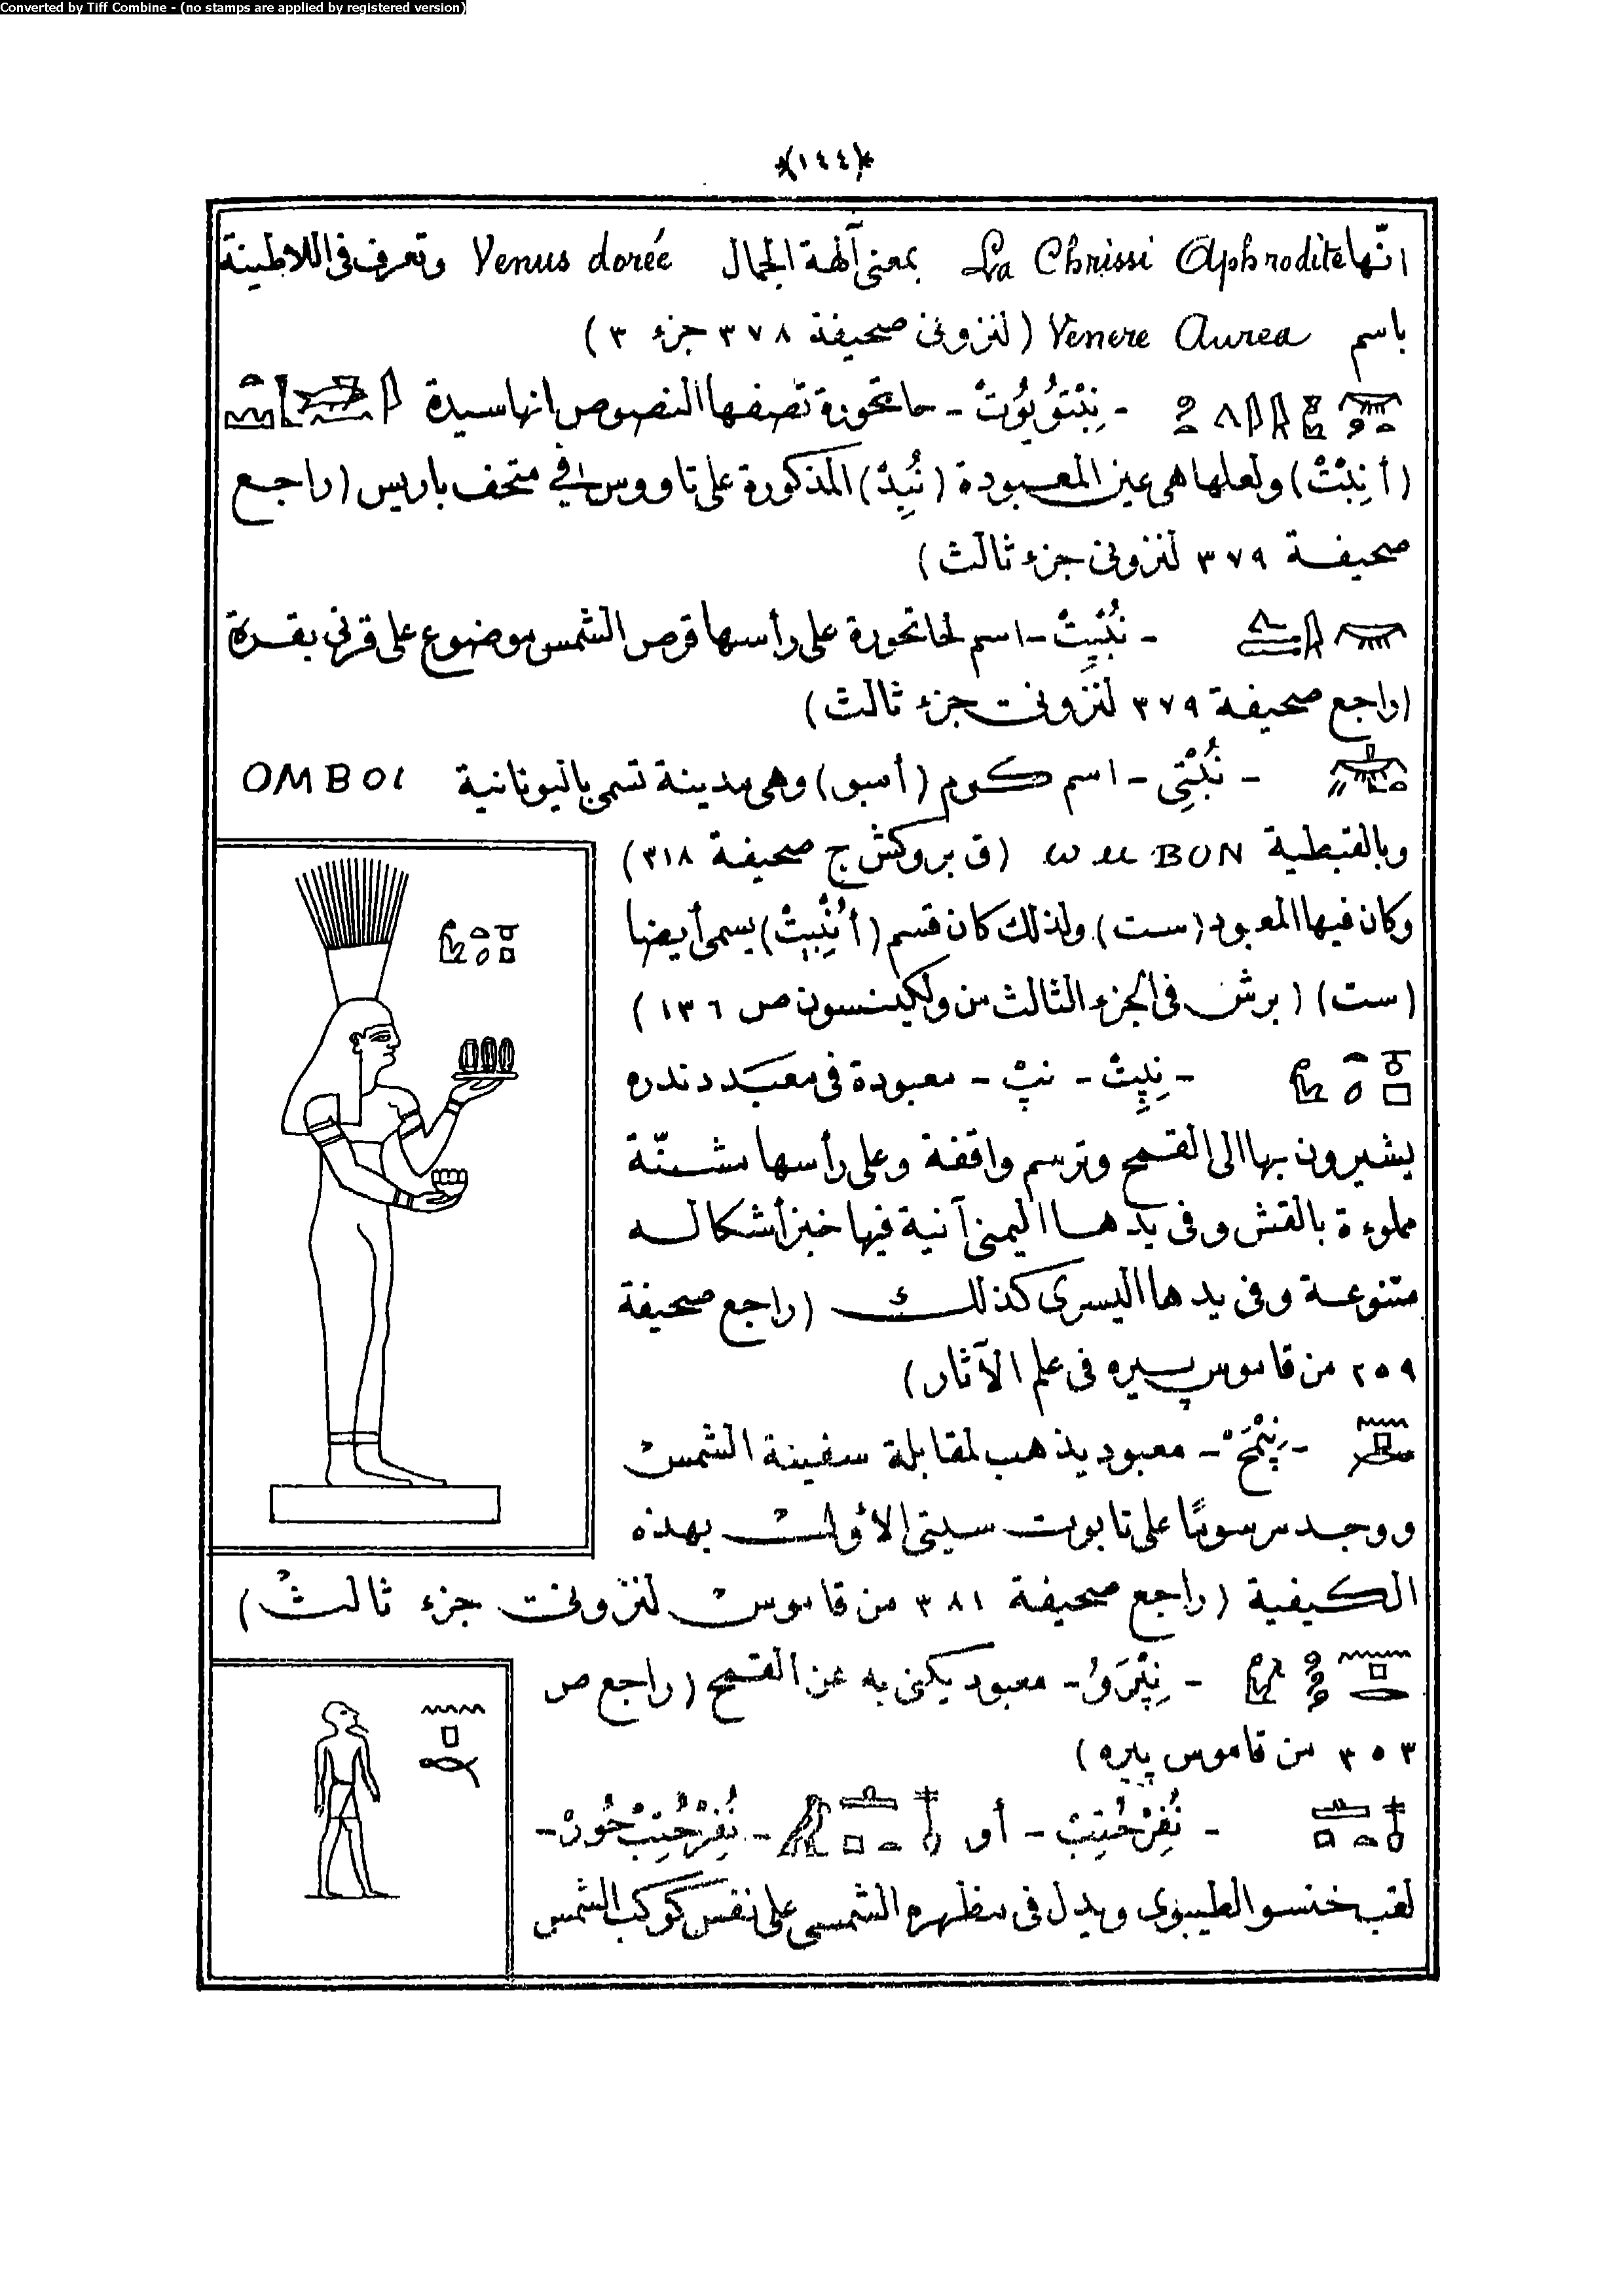 Converted by Tiff Combine - (no stamps are applied by registered version)
*(١٤٤)*
انّها La Chrissi Aphrodite بمعنى آلهة الجمال Venus dorée وتعرف فى اللاطينية
باسم Venere Aurea (لنزونى صحيفة ٣٧٨ جزء ٣)
- نِبْتوُيوُتْ - حاتحورة تصفها النصوص انها سيدة
(أنِبْتْ) ولعلها هى عين المعبودة (نُبِدْ) المذكورة على تاووس فى متحف باريس (راجع
صحيفة ٣٧٩ لنزونى جزء ثالث)
- نُبْيِتْ - اسم لحاتحورة على رأسها قرص الشمس موضوع على قرنى بقرة
(راجع صحيفة ٣٧٩ لنزونى جزء ثالث)
- نُبْتِى - اسم كوم (أمبو) وهى مدينة تسمى باليونانية OMBOI
وبالقبطية ⲱⲙBON (ق بروكش ج صحيفة ٣١٨)
وكان فيها المعبود (ست) ولذلك كان قسم (أنُبِيتْ) يسمى أيضا
(ست) (برش فى الجزء الثالث من ولكينسون ص ١٣٦)
- نِپِتْ - نپْ - معبودة فى معبد دندره
يشيرون بها الى القمح وترسم واقفة وعلى رأسها مشنّة
مملوءة بالقش وفى يدها اليمنى آنية فيها خبز أشكاله
متنوعة وفى يدها اليسرى كذلك (راجع صحيفة
٢٥٩ من قاموس پيره فى علم الآثار)
- نِپْمَحْ - معبود يذهب لمقابلة سفينة الشمس
ووجد مرسومًا على تابوت سيتى الأول بهذه
الكيفية (راجع صحيفة ٣٨١ من قاموس لنزونى جزء ثالث)
- نِپْرَوُ - معبود يكنى به عن القمح (راجع ص
٣٥٣ من قاموس پيره)
- نُفِرْحُتِبْ - أو - نُفِرْحُتِبْ حُورْ -
لقب خنسو الطيبوى ويدل فى مظهره الشمسى على نفس كوكب الشمس